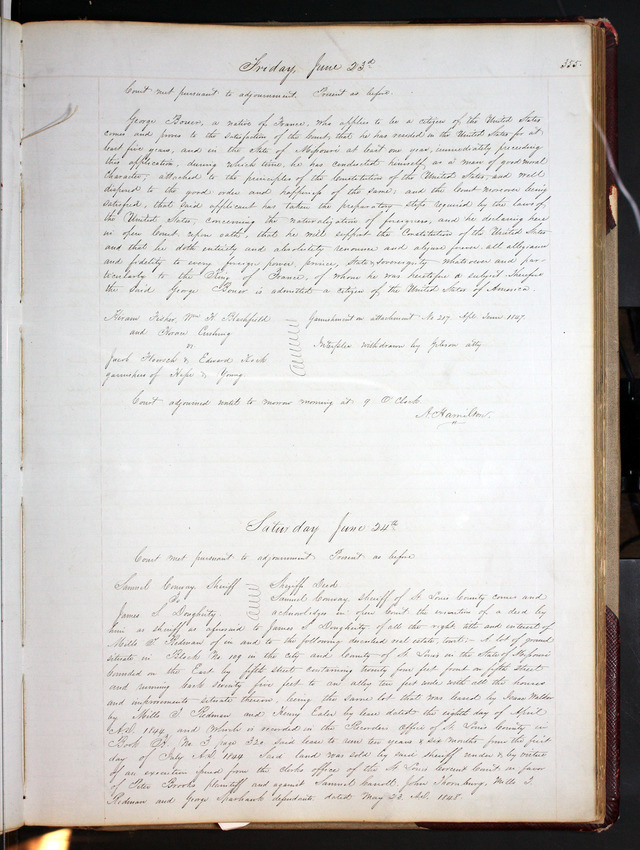 Friday, June 23d
355.
Court met pursuant to adjournment. Present as before.
George Bouer, a native of France, who applies to be a citizen of the United States
comes and proves to the satisfaction of the Court, that he has resided in the United States for at
least five years, and in the State of Missouri at least one year, immediately preceding
this application, during which time, he has conducted himself as a man of good moral
character, attached to the principles of the Constitution of the United States, and well
disposed to the good order and happiness of the same; and the Court moreover being
satisfied, that said applicant has taken the preparatory steps required by the laws of
the United States, concerning the naturalization of foreigners, and he declaring here
in open Court, upon oath, that he will support the Constitution of the United States
and that he doth entirely and absolutely renounce and abjure forever all allegiance
and fidelity to every foreign power, prince, State & sovereignty whatsoever and par-
ticularly to the King of France, of whom he was heretofore a subject. Therefore
the said George Bouer is admitted a citizen of the United States of America.
Hiram Fisher, Wm H. Blashfield
and Cushing
vs
Jacob & Edward
garnishees of Hope & Young
Garnishment on attachment No 217 Apl. Term 1847.
Interplea withdrawn by atty
Court adjourned until to morrow morning at 9 O Clock
A Hamilton.
Saturday June 24th
Court met pursuant to adjournment. Present as before
Samuel Conway, Sheriff
To
James S. Dougherty
Sheriffs Deed
Samuel Conway, sheriff of St Louis County comes and
acknowledges in open Court the execution of a deed by
him as sheriff as aforesaid to James S. Dougherty, of all the right title and interest of
Mills T. Redman of in and to the following described real estate, to wit: A lot of ground
situate in Block No 119 in the city and County of St Louis in the State of Missouri
bounded on the East by fifth street containing twenty four feet front on fifth street
and running back seventy five feet to an alley ten feet wide with all the houses
and improvements situate thereon, being the same lot that was leased by Isaac Walker
by Mills T. Redman and Henry Eales by lease dated the eighth day of April
A.D. 1844, and which is recorded in the Recorders office of St Louis County in
Book No 3, page 320, said lease to run ten years & six months from the first
day of July A.D. 1844. Said land was sold by said sheriff under & by virtue
of an execution issued from the clerks office of the St Louis Circuit Court in favor
of Peter Brooks plaintiff and against Samuel Carroll, John Thornburg, Mills T.
Redman and George Sparhawk defendants dated May 23. A.D. 1848.